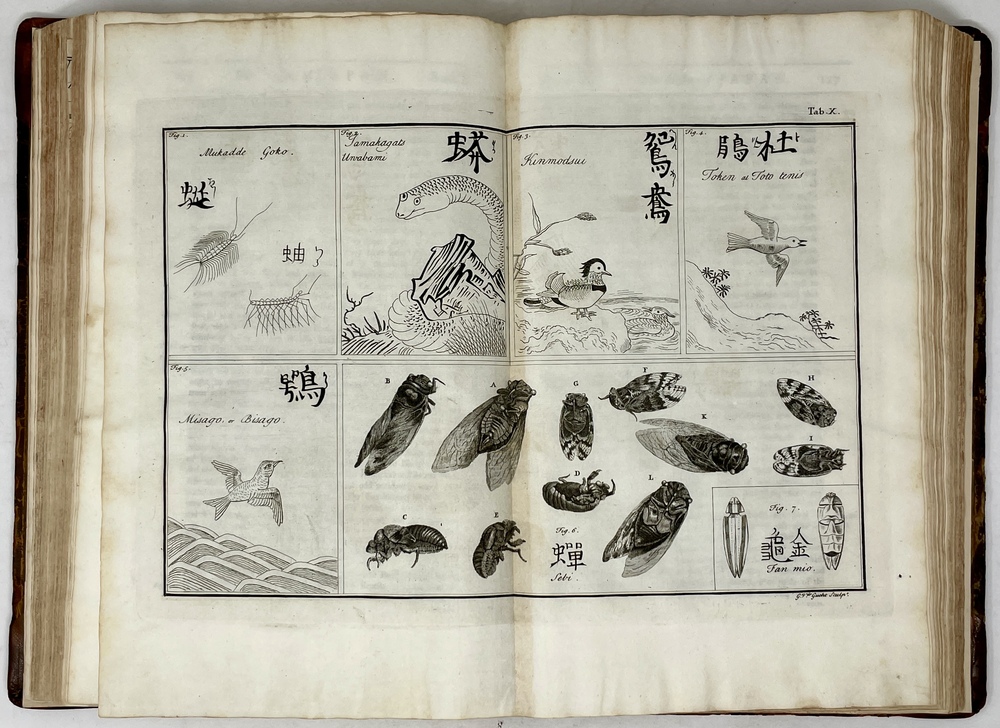 Tab. X.
Fig. 1.
Mukadde Goko.
蜒
蚰
Fig. 2.
Jamakagats
Uwabami
蟒
Fig. 3.
Kinmodsui
鴛鴦
Fig. 4.
杜鵑
Token al Foto tenis
Fig. 5.
鶚
Misago. or Bisago.
B
A
G
F
H
K
I
D
L
C
E
Fig. 6.
蟬
Sebi.
Fig. 7.
金龜
Fan mio.